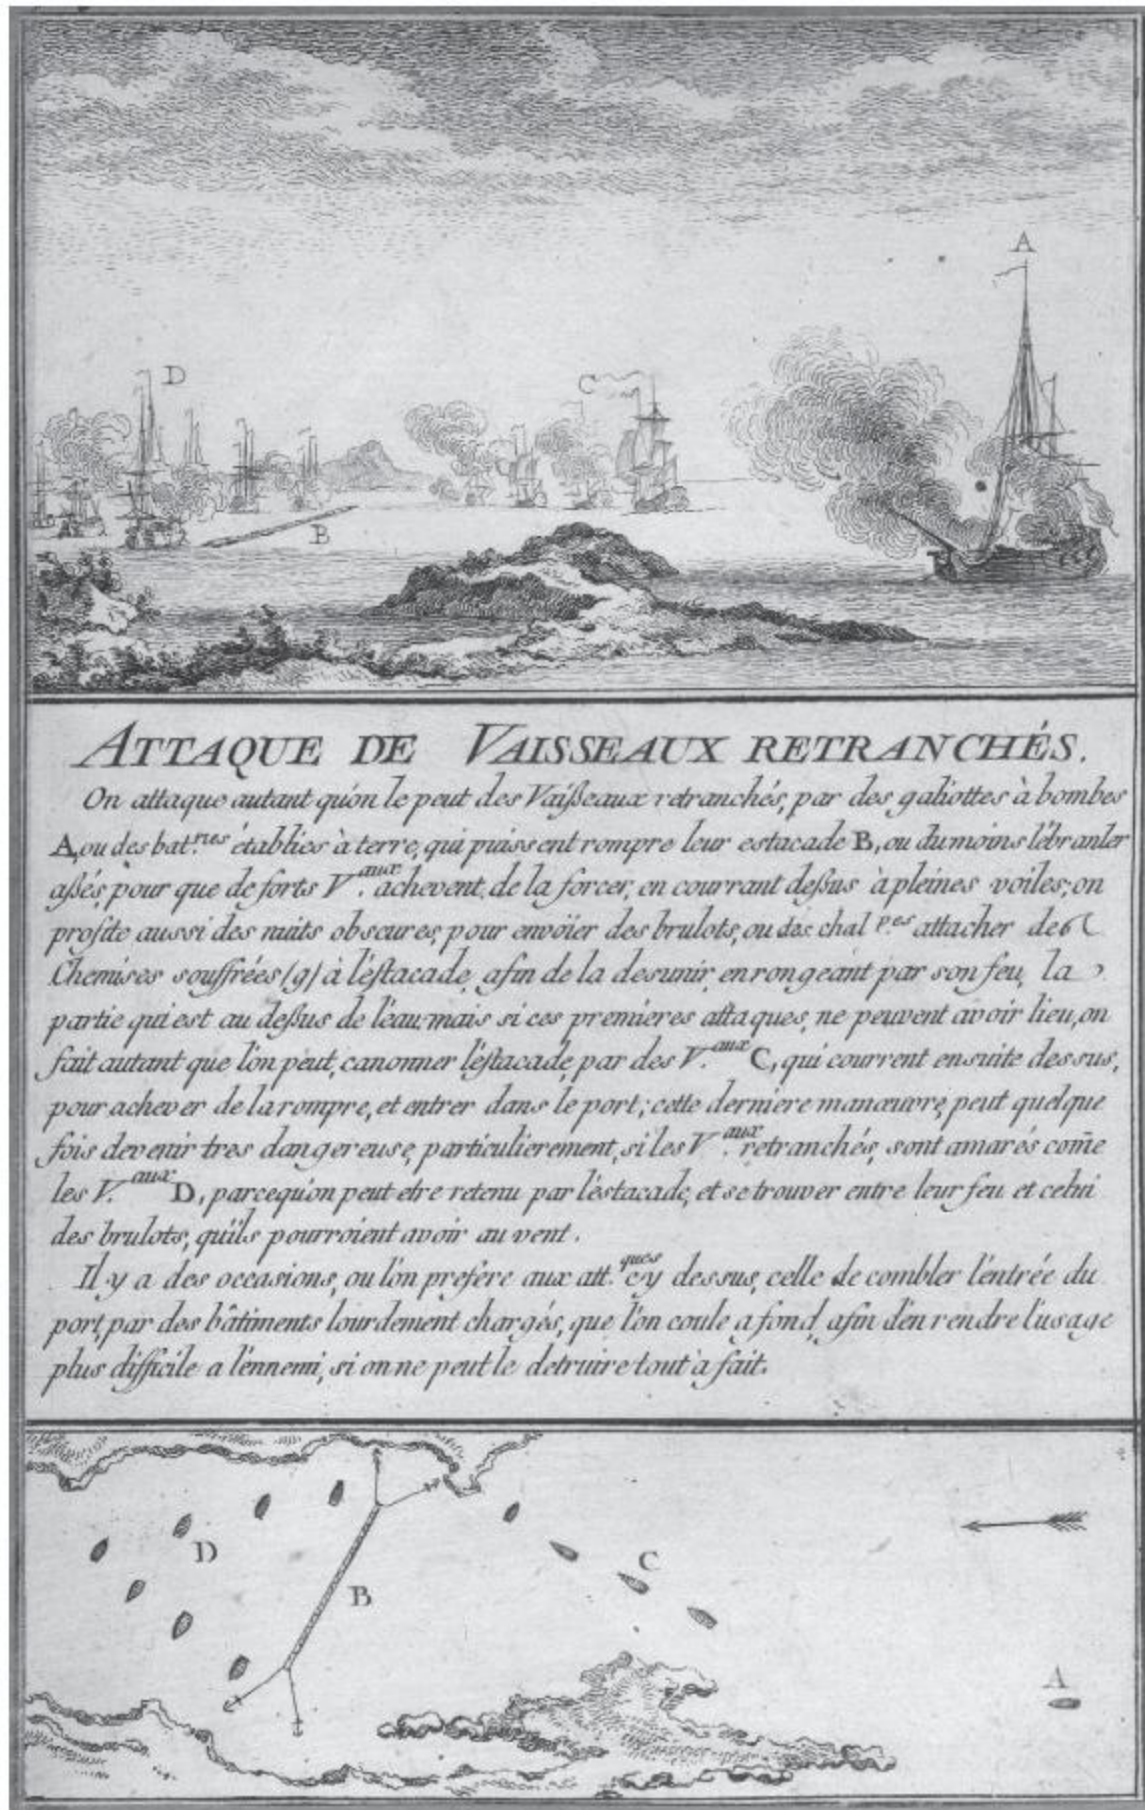 A
D
C
B
ATTAQUE DE VAISSEAUX RETRANCHÉS.
On attaque autant qu'on le peut des Vaißeaux retranchés, par des galiottes à bombes
A, ou des bat.ries établies à terre, qui puissent rompre leur estacade B, ou dumoins l'ébranler
aßés, pour que de forts V.aux achevent de la forcer, en courrant deßus à pleines voiles; on
profite aussi des nuits obscures, pour envoïer des brulots, ou des chal.pes attacher des
Chemises souffrées (g) à l'estacade, afin de la desunir, en rongeant par son feu, la
partie qui est au deßus de l'eau; mais si ces premières attaques, ne peuvent avoir lieu, on
fait autant que l'on peut, canonner l'estacade, par des V.aux C, qui courrent ensuite dessus,
pour achever de la rompre, et entrer dans le port; cette derniere manœuvre, peut quelque
fois devenir tres dangereuse, particulierement, si les V.aux retranchés, sont amarés com̄e
les V.aux D, parcequ'on peut etre retenu par l'estacade, et se trouver entre leur feu et celui
des brulots, qu'ils pourroient avoir au vent.
Il y a des occasions, ou l'on prefère aux att.ques cy dessus, celle de combler l'entrée du
port, par des bâtiments lourdement chargés, que l'on coule a fond, afin d'en rendre l'usage
plus difficile a l'ennemi, si on ne peut le detruire tout à fait.
D
B
C
A